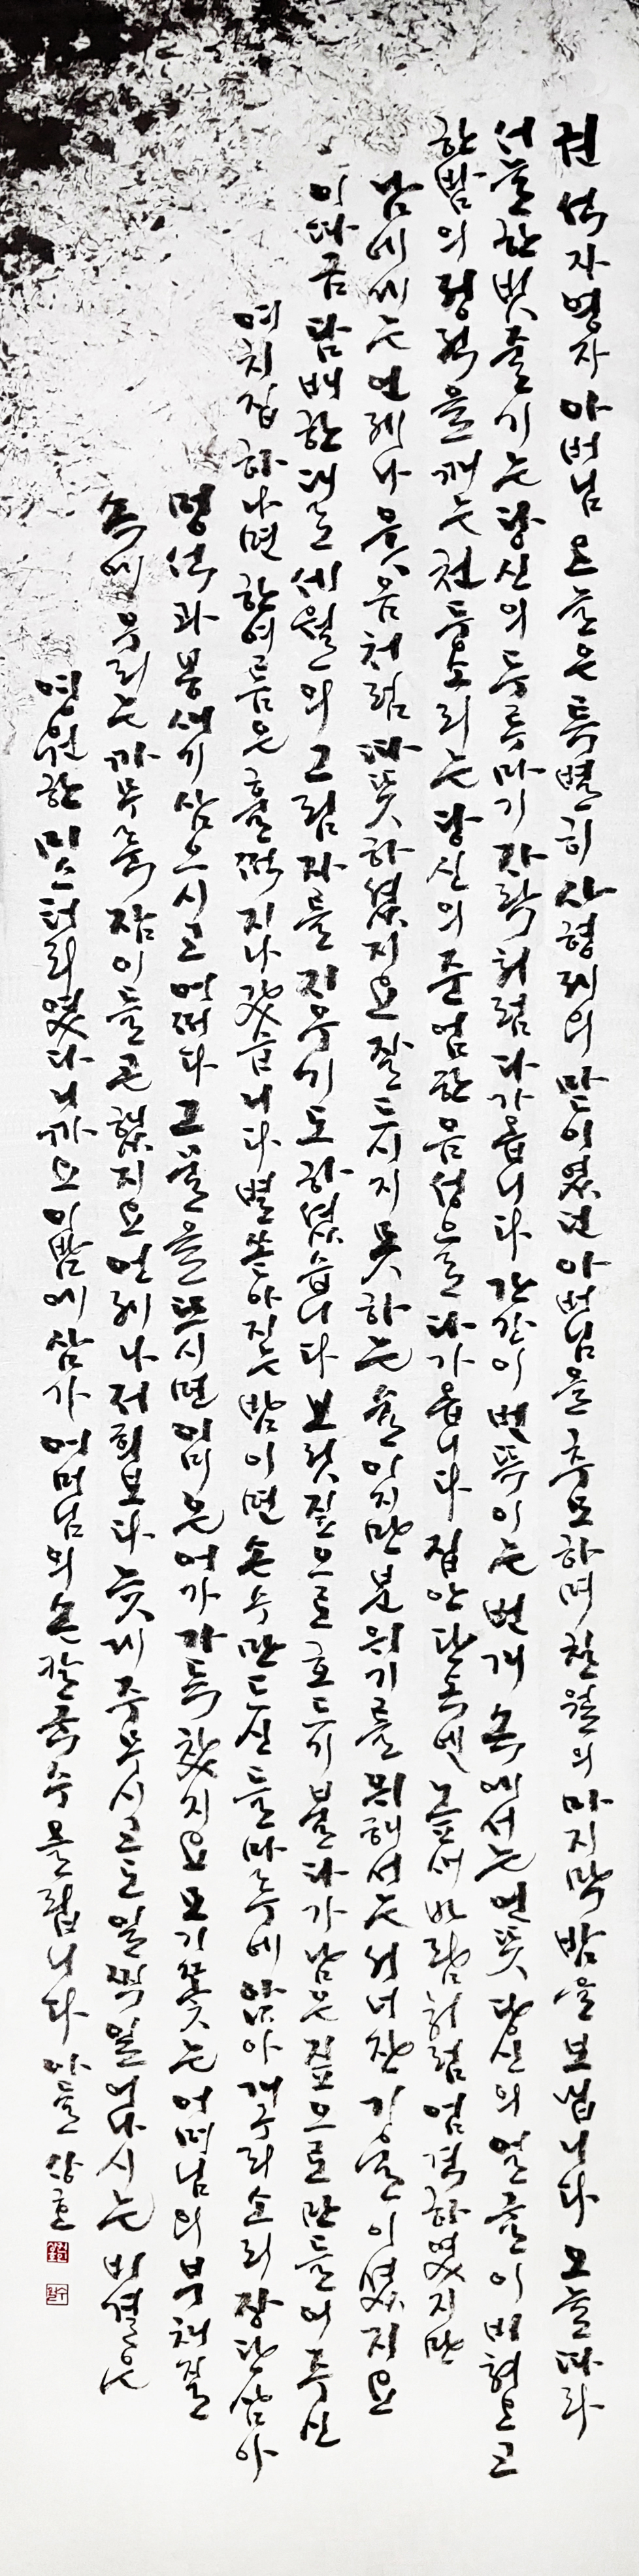 권 석자 영자 아버님 오늘은 특별히 삼형제의 맏이였던 아버님을 추모하며 칠월의 마지막 밤을 보냅니다 오늘따라
서늘한 빗줄기는 당신의 두루마기 자락처럼 다가옵니다 간간이 번뜩이는 번개 속에서는 언뜻 당신의 얼굴이 비춰오고
한밤의 정적을 깨는 천둥소리는 당신의 준엄한 음성으로 다가옵니다 집안 단속엔 높새바람처럼 엄격하였지만
남에게는 언제나 웃음처럼 따뜻하셨지요 잘 드시지 못하는 술이지만 분위기를 위해서는 서너잔 기울이셨지요
이따금 담배 한 대로 세월의 그림자를 지우기도 하셨습니다 보릿짚으로 호드기 불다가 남은 짚으로 만들어주신
여치집 하나면 한여름은 훌쩍 지나갔습니다 별 쏟아지는 밤이면 손수 만드신 들마루에 앉아 개구리 소리 장단삼아
멍석과 봉새기 삼으시고 어쩌다 그물을 뜨시면 이미 은어가 가득 찼지요 모기 쫓는 어머님의 부채질
속에 우리는 까무룩 잠이 들곤 했지요 언제나 저희보다 늦게 주무시고도 일찍 일어나시는 비결은
영원한 미스터리였다니까요 이 밤에 삼가 어머님의 손칼국수 올립니다 아들 상호